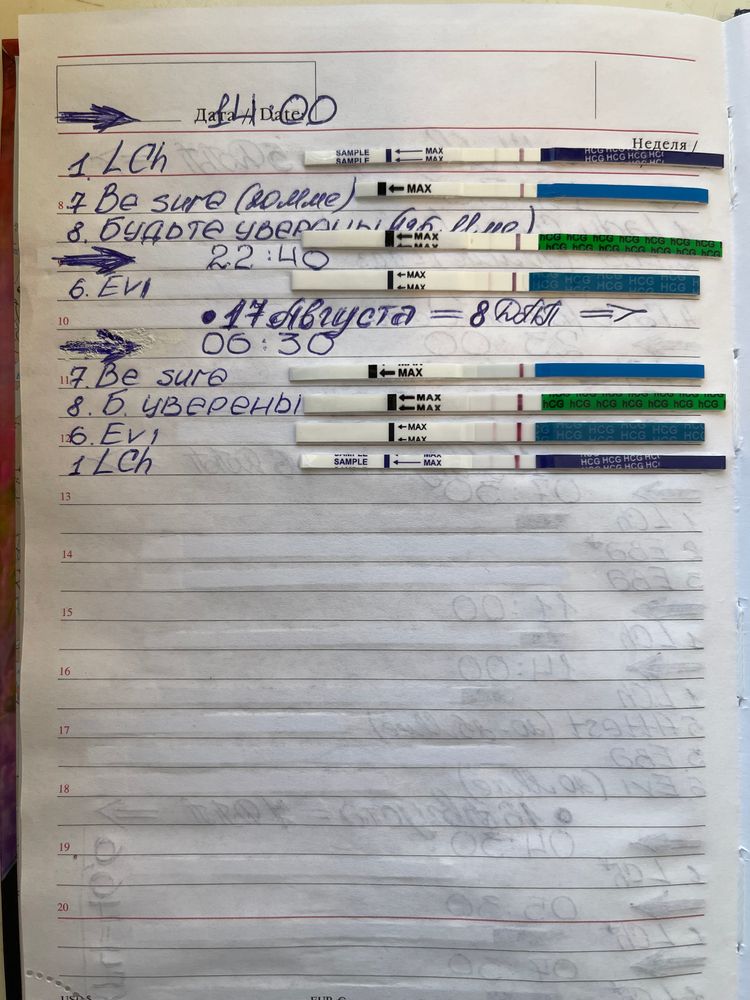 Дата / Date:
14:00
Неделя /
1. LCh
SAMPLE ← MAX
SAMPLE ← MAX
HCG HCG HCG
8
7 Be sure (10мме)
← MAX
8. Будьте уверены
← MAX
← MAX
hCG hCG hCG hCG hCG
hCG hCG hCG hCG hCG
22:40
6. Evi
← MAX
← MAX
HCG HCG HCG HCG
10
• 17 Августа = 8 ДПП ⇒
06:30
11
7. Be sure
← MAX
8. Б. уверены
← MAX
← MAX
hCG hCG hCG hCG hCG
12
6. Evi
← MAX
← MAX
HCG HCG HCG HCG
1 LCh
SAMPLE
SAMPLE ← MAX
HCG HCG HCG
13
14
15
16
17
18
19
20